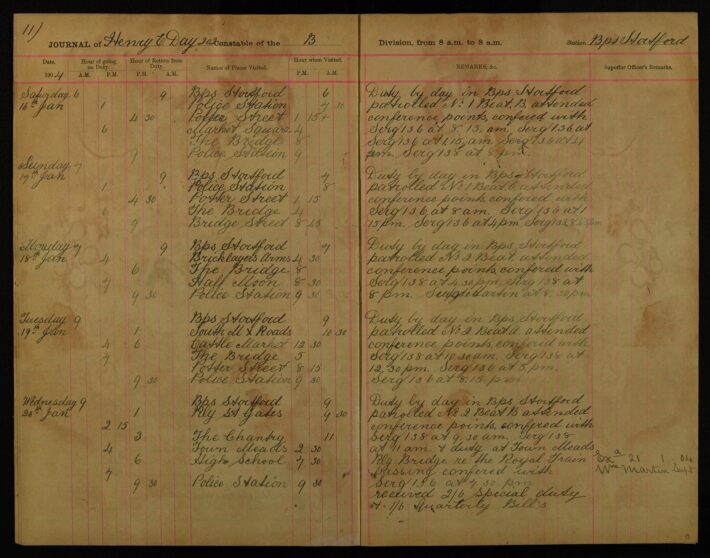 11)
JOURNAL of Henry E Day 202 Constable of the B Division, from 8 a.m. to 8 a.m. Station Bps Stortford
Date. Hour of going on Duty. Hour of Return from Duty. Names of Places Visited. Hour when Visited. REMARKS, &c. Superior Officer's Remarks.
1904 A.M. P.M. A.M. P.M. A.M. P.M.
Saturday 6 9 Bps Stortford 6 Duty by day in Bps Stortford
16th Jan 1 Police Station 7 patrolled No 1 Beat B attended
4 30 Potter Street 1 15 conference points, confered with
6 Market Square 4 Serg 136 at 8.15, am. Serg 136 at
The Bridge 8 Serg 136 at 1,15, am Serg 136 at 4
9 Police Station 9 pm. Serg 138 at 8 pm.
Sunday 7 9 Bps Stortford 7 Duty by day in Bps Stortford
17th Jan 1 Police Station 8 patrolled No 1 Beat attended
4 30 Potter Street 1 15 conference points, confered with
6 The Bridge 4 Serg 136, at 8 am. Serg 136 at 1
9 Bridge Street 8 45 15 pm. Serg 136 at 4 pm Serg 138 8.45 pm
Monday 7 9 Bps Stortford 7 Duty by day in Bps Stortford
18th Jan 4 Bricklayers Arms 4 30 patrolled No 2 Beat attended
6 The Bridge 8 conference points, confered with
7 Half Moon 8 30 Serg 138 at 4.30 pm, Serg 138 at
9 30 Police Station 9 30 8 pm. Supt Martin at 8.30 pm
Tuesday 9 Bps Stortford 9 Duty by day in Bps Stortford
19th Jan 1 South Mill Roads 10 30 patrolled No 2 Beat attended
4 6 Cattle Market 12 30 conference points, confered with
7 The Bridge 5 Serg 138 at 10.30 am. Serg 138 at
Potter Street 8 15 12,30 pm. Serg 136 at 5, pm.
9 30 Police Station 9 30 Serg 136 at 8.15 pm.
Wednesday 9 Bps Stortford 9 Duty by day in Bps Stortford
20th Jan 1 Rly St Gates 9 30 patrolled No 2 Beat B attended
2 15 conference points, confered with
3 The Chantry 11 Serg 138 at 9,30 am. Serg 138
4 Town Meads 2 30 at 11 am & duty at Town Meads
6 High School 7 30 Rly Bridge re the Royal Train Exd 21 1 04
7 passing confered with Wm Martin Supt
9 30 Police Station 9 30 Serg 136 at 7,30 pm
received 2/6 Special duty
& 1/6 Quarterly Bill's